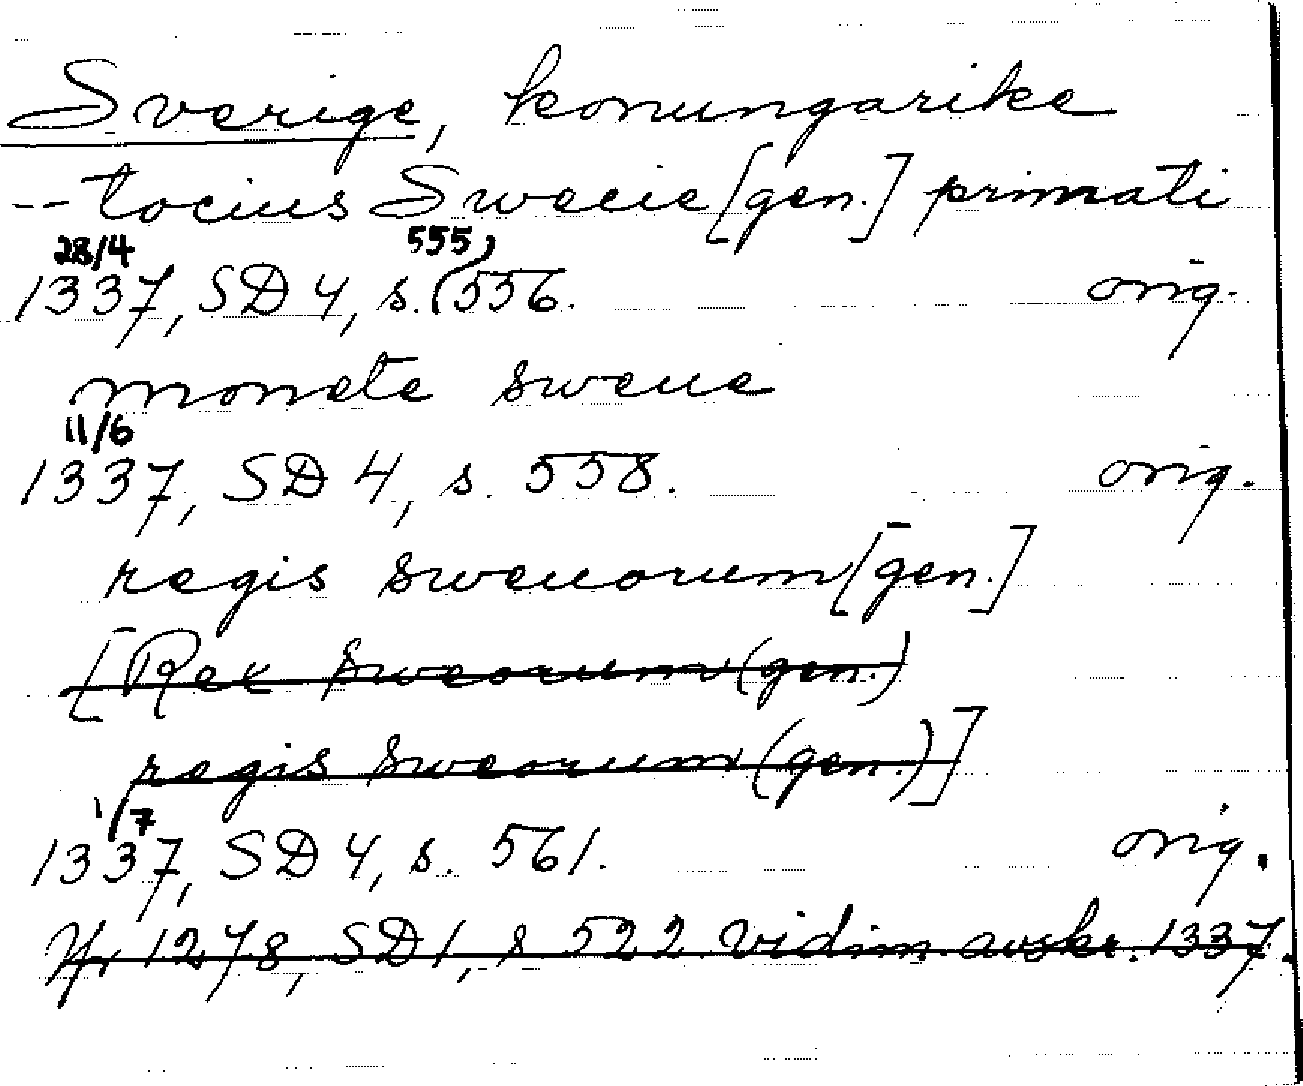 Sverige, konungarike
-- tocius Swecie [gen.] primati
28/4 555,
1337, SD 4, s. (556. orig.
monete sweue
11/6
1337, SD 4, s. 558. orig.
regis sweuorum [gen.]
[Rex sweorum (gen.)
regis sweorum (gen.)]
1/7
1337, SD 4, s. 561. orig.
Jfr 1278, SD 1, s 522 vidim. avskr. 1337.